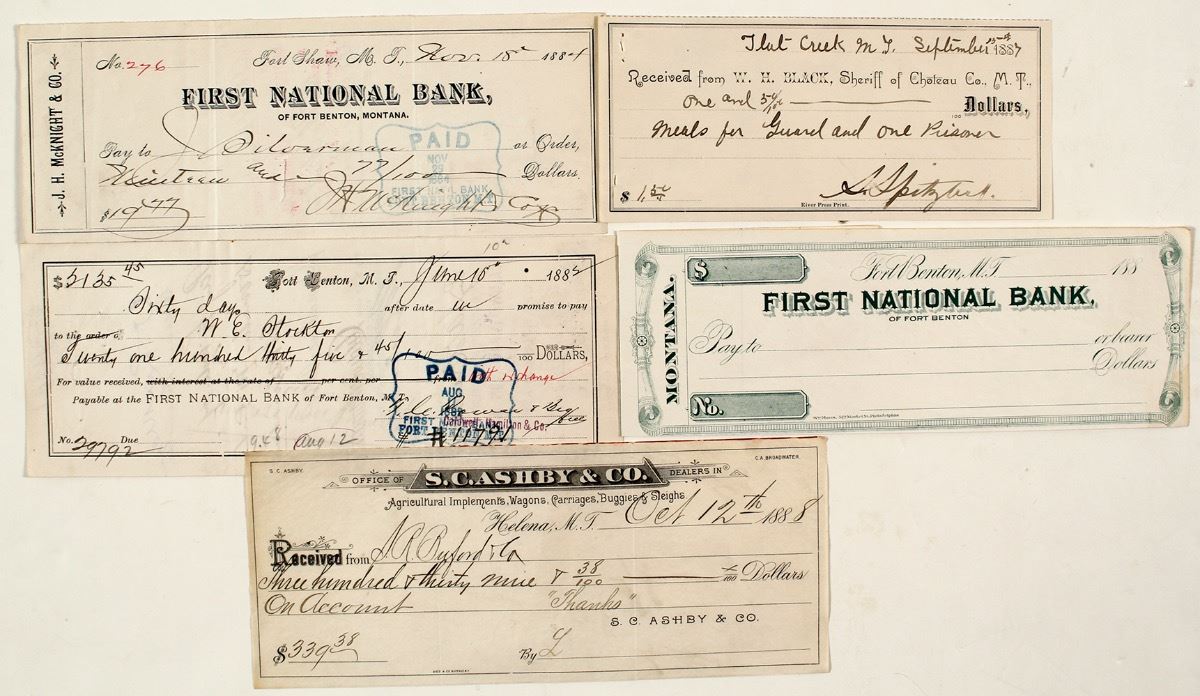 J. H. McKNIGHT & CO.
No. 276 Fort Shaw, M. T., Nov. 18th 1884
FIRST NATIONAL BANK,
OF FORT BENTON, MONTANA.
Pay to J Silverman or Order,
Nineteen and 77/100 Dollars
$19.77 J H McKnight & Co
PAID
NOV
1884
FIRST NAT'L BANK
FORT BENTON M.T.
Flat Creek M T. September 15th 1887
Received from W. H. BLACK, Sheriff of Choteau Co., M. T.,
One and 50/100 Dollars,
100
Meals for Guard and one Prisoner
$ 1.50
River Press Print.
$2135 45 Fort Benton, M. T., June 10th 1882
10th
Sixty days after date we promise to pay
to the order of W. E. Stockton
Twenty one hundred thirty five & 45/100 100 DOLLARS,
For value received, with interest at the rate of per cent. per
Payable at the FIRST NATIONAL BANK of Fort Benton, M. T.
No. 29792 Due Aug 12
PAID
AUG
1882
FIRST
FORT BENTON
MONTANA.
$ Fort Benton, M. T. 188
FIRST NATIONAL BANK,
OF FORT BENTON
Pay to or bearer
Dollars
No.
S. C. ASHBY. C. A. BROADWATER.
OFFICE OF S. C. ASHBY & CO. DEALERS IN
Agricultural Implements, Wagons, Carriages, Buggies & Sleighs
Helena, M. T. Oct 12th 1888
Received from
Three hundred & thirty nine & 38/100 /100 Dollars
On Account "Thanks"
S. C. ASHBY & CO.
$339 38 By L